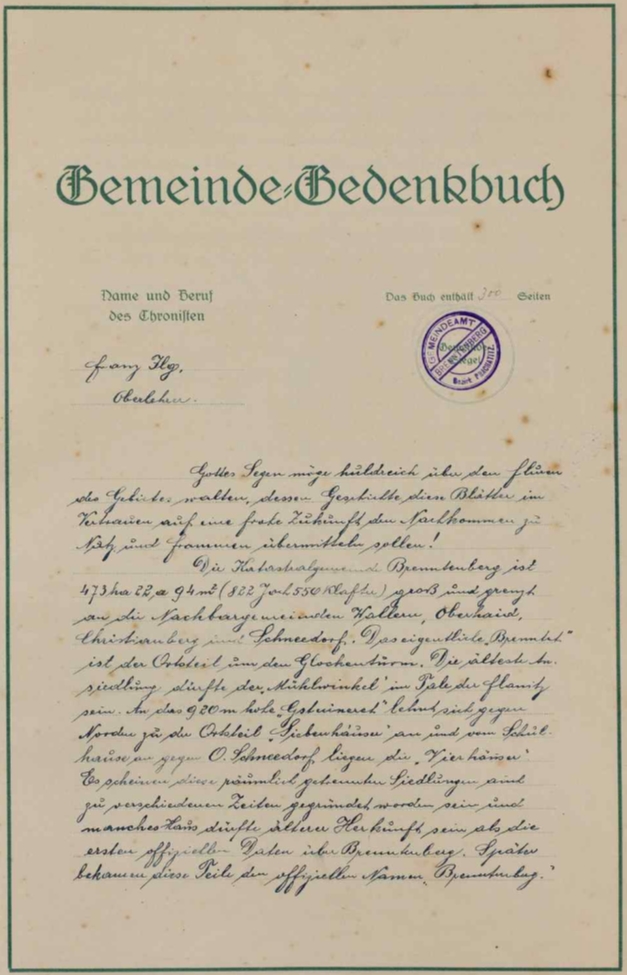 Gemeinde-Gedenkbuch
Name und Beruf
des Chronisten
Das Buch enthält 300 Seiten
GEMEINDEAMT
BRENNTENBERG
Bezirk PRACHATITZ.
Gemeinde-
Siegel
Franz Ilg,
Oberlehrer.
Gottes Segen möge huldreich über den Fluren
des Gebietes walten, dessen Geschichte diese Blätter im
Vertrauen auf eine frohe Zukunft den Nachkommen zu
Nutz und Frommen übermitteln sollen!
Die Katastralgemeinde Brenntenberg ist
473 ha 22 a 94 m² (822 Joch 550 Klafter) groß und grenzt
an die Nachbargemeinden Wallern, Oberhaid,
Christianberg und Schneedorf. Das eigentliche „Brenntet"
ist der Ortsteil um den Glockenturm. Die älteste An-
siedlung dürfte der „Mühlwinkel" im Tale der Flanitz
sein. An das 920 m hohe „Gsteineret" lehnt sich gegen
Norden zu der Ortsteil „Siebenhäuser" an und vom Schul-
hause an gegen O. Schneedorf liegen die „Vierhäuser"
Es scheinen diese räumlich getrennten Siedlungen
zu verschiedenen Zeiten gegründet worden sein und
manches Haus dürfte älterer Herkunft sein als die
ersten offiziellen Daten über Brenntenberg. Später
bekamen diese Teile den offiziellen Namen „Brenntenberg."